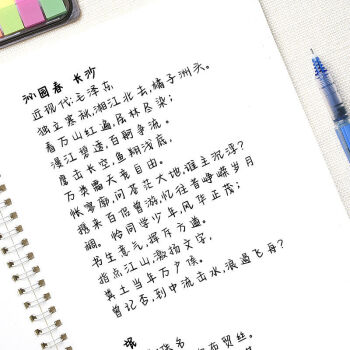 沁园春 长沙
近现代:毛泽东
独立寒秋,湘江北去,橘子洲头。
看万山红遍,层林尽染;
漫江碧透,百舸争流。
鹰击长空,鱼翔浅底,
万类霜天竞自由。
怅寥廓,问苍茫大地,谁主沉浮?
携来百侣曾游,忆往昔峥嵘岁月
稠。恰同学少年,风华正茂;
书生意气,挥斥方遒。
指点江山,激扬文字,
粪土当年万户侯。
曾记否,到中流击水,浪遏飞舟?